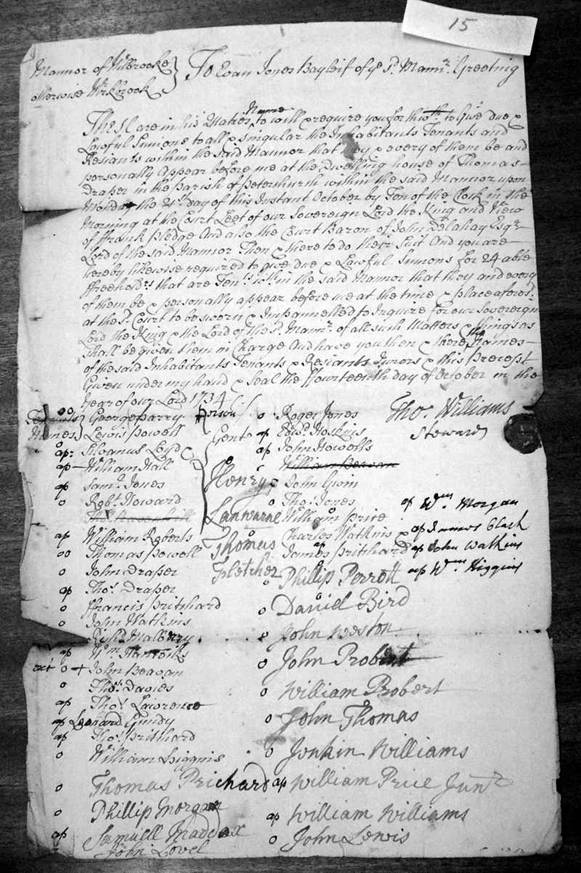 15
Mannor of Wilbrooke } To Evan Jones Bayleif of ye sd. Mannr. Greeting
otherwise Wilbrook }
These are in his Maties Name to will & require you forthwth. to Give due &
Lawful Sumons to all & Singular the Inhabitants Tenants and
Resiants within the said Mannor that they & every of them be and
personally Appear before me at the Dwelling house of Thomas
Draper in the Parish of Peterchurch within the said Mannor upon
the 21 day of this Instant October by Ten of the Clock in the
Morning at the Court Leet of our Sovereign Lord the King and View
of ffrank Pledge And also the Court Baron of John Delahay Esqr.
Lord of the said Mannor Then & there to do their Suit And you are
hereby likewise required to give due & Lawful Sumons for 24 able
ffreeholdrs. that are in the said Mannor that they and every
of them be & personally appear before me at the time & place aforesd.
at the sd. Court to be sworn & Impannelled to Inquire for our Sovereign
Lord the King & the Lord of the sd. Mannr. of all such Matters & things as
shall be given them in Charge And have you then there the Names
of the said Inhabitants Tenants & Resiants Jurors & this Precept
Given under my hand & Seal the ffourteenth day of October in the
year of our Lord 1734
oo George Parry o Roger Jones Tho. Williams
Lewis Powell Gents ap Hoskyns Steward
ap Lloyd ap John Howells
ap William Hall William Bevan
ap Saml. Jones Henry o John Gwin
o Robt. Howard o Thos. Jones ap Wm. Morgan
Lanwarne William Price ap James Clark
ap William Roberts Charles Watkins ap John Watkins
oo Thomas Powell Thomas James Pritchard ap Wm. Higgins
o John Draper Fletcher Phillip Perrott
ap Thos. Draper
o Francis Pritchard o Daniel Bird
o John Watkins
Richd. Malbery o John Weston
ap Wm.
o + John Beavan o John Probert
o Thos. Davies
ap Thos. Lawrence o William Probert
ap Leonard Gundy o John Thomas
ap Thos. Pritchard
o William Higgins o Jenkin Williams
o Thomas Prichard ap William Price Junr.
o Phillip Morgan ap William Williams
ap Samuell Maddox o John Lewis
John Lovel